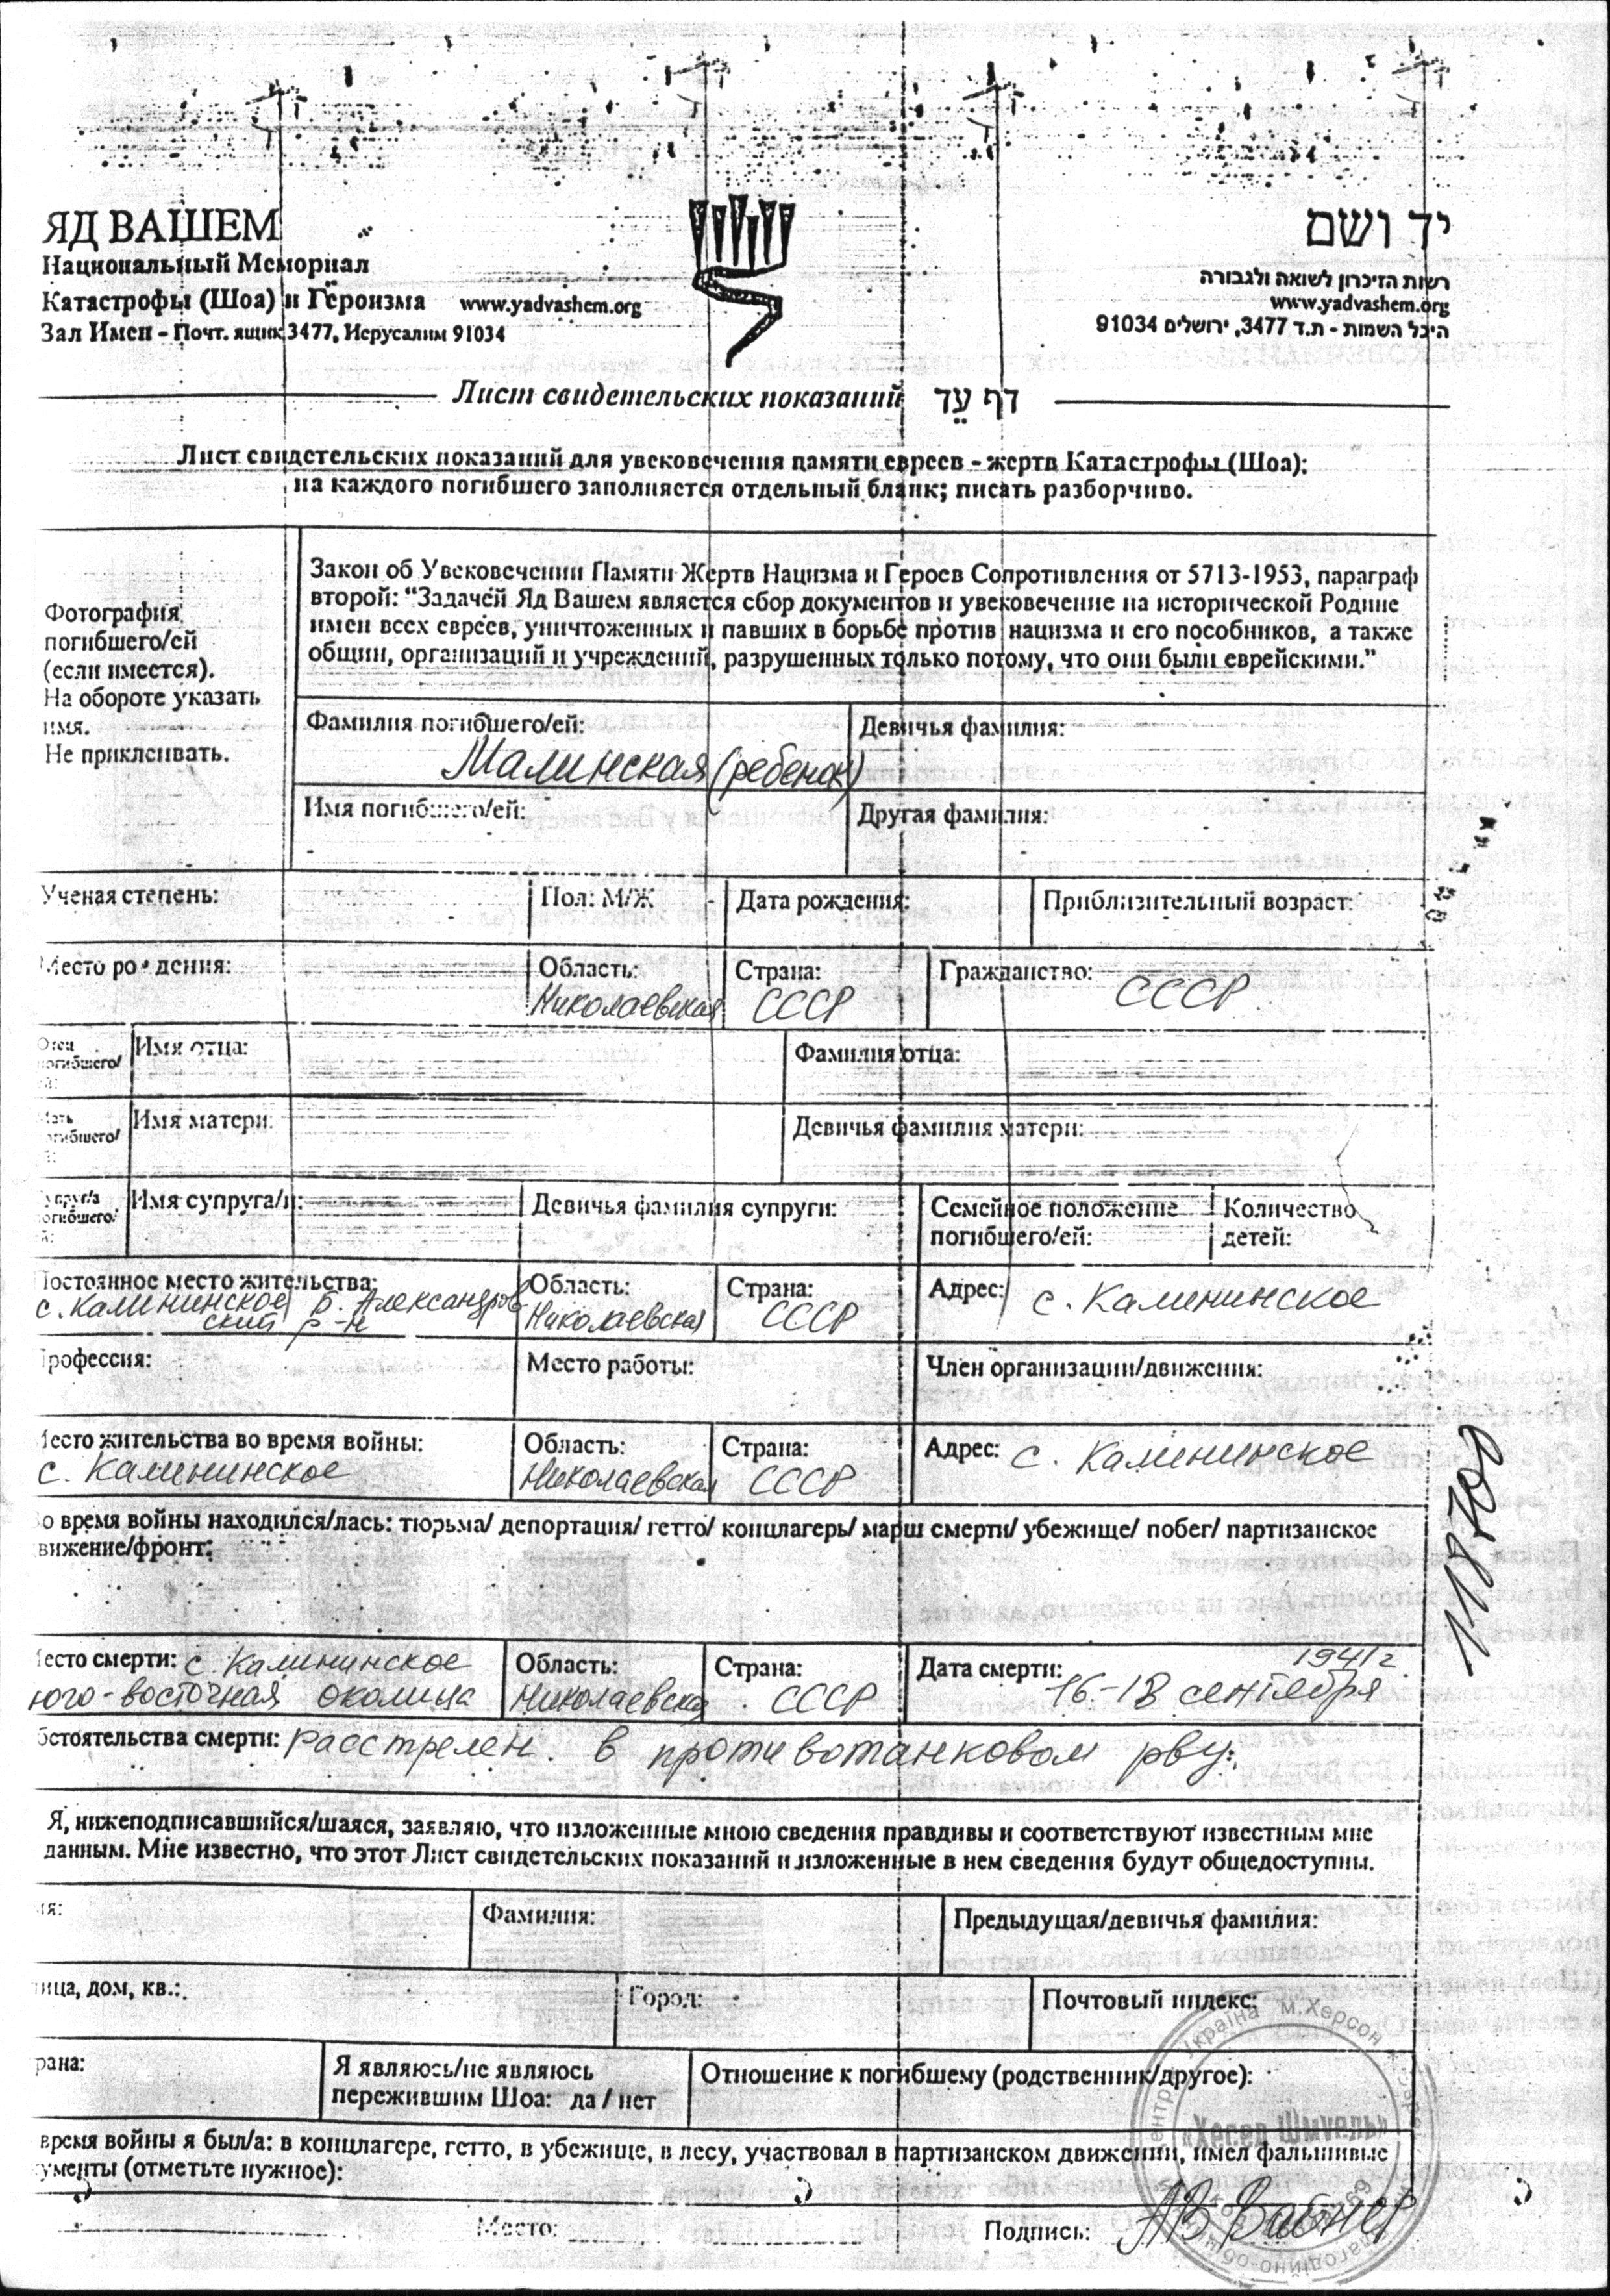 ЯД ВАШЕМ
Национальный Мемориал
Катастрофы (Шоа) и Героизма www.yadvashem.org
Зал Имен - Почт. ящик 3477, Иерусалим 91034
יד ושם
רשות הזיכרון לשואה ולגבורה
www.yadvashem.org
היכל השמות - ת.ד 3477, ירושלים 91034
Лист свидетельских показаний דף עֵד
Лист свидетельских показаний для увековечения памяти евреев - жертв Катастрофы (Шоа);
на каждого погибшего заполняется отдельный бланк; писать разборчиво.
Фотография
погибшего/ей
(если имеется).
На обороте указать
имя.
Не приклеивать.
Закон об Увековечении Памяти Жертв Нацизма и Героев Сопротивления от 5713-1953, параграф
второй: “Задачей Яд Вашем является сбор документов и увековечение на исторической Родине
имен всех евреев, уничтоженных и павших в борьбе против нацизма и его пособников, а также
общин, организаций и учреждений, разрушенных только потому, что они были еврейскими.”
Фамилия погибшего/ей: Девичья фамилия:
Малинская (ребенок)
Имя погибшего/ей: Другая фамилия:
-
Ученая степень: Пол: М/Ж Дата рождения: Приблизительный возраст:
Место рождения: Область: Страна: Гражданство:
Николаевская СССР СССР
Отец
погибшего/
Имя отца: Фамилия отца:
погибшего/
Имя матери: Девичья фамилия матери:
погибшего/
Имя супруга/и: Девичья фамилия супруги: Семейное положение Количество
погибшего/ей: детей:
Постоянное место жительства: Область: Страна: Адрес: с. Калининское
с. Калининское б. Александров Николаевская СССР
ский р-н
Профессия: Место работы: Член организации/движения:
Место жительства во время войны: Область: Страна: Адрес: с. Калининское
с. Калининское Николаевская СССР
во время войны находился/лась: тюрьма/ депортация/ гетто/ концлагерь/ марш смерти/ убежище/ побег/ партизанское
движение/фронт:
Место смерти: с. Калининское Область: Страна: Дата смерти: 1941 г.
юго-восточная околица Николаевская СССР 16-18 сентября
Обстоятельства смерти: Расстрелен в противотанковом рву.
Я, нижеподписавшийся/шаяся, заявляю, что изложенные мною сведения правдивы и соответствуют известным мне
данным. Мне известно, что этот Лист свидетельских показаний и изложенные в нем сведения будут общедоступны.
Фамилия: Предыдущая/девичья фамилия:
улица, дом, кв.: Город: Почтовый индекс:
страна: Я являюсь/не являюсь Отношение к погибшему (родственник/другое):
пережившим Шоа: да / нет
время войны я был/а: в концлагере, гетто, в убежище, в лесу, участвовал в партизанском движении, имел фальшивые
документы (отметьте нужное):
Место: Подпись:
Україна м.Херсон
«Хесед Шмуель»